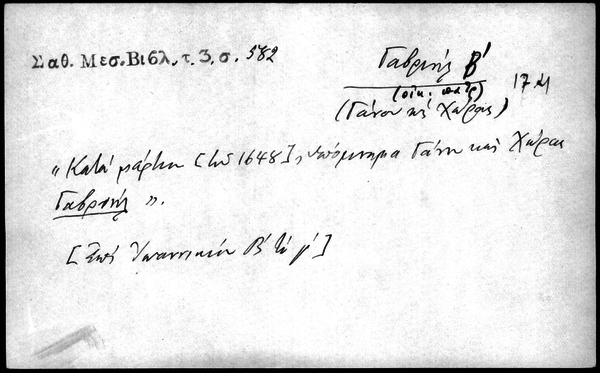 Σαθ. Μεσ. Βιβλ. τ. 3, σ. 582
Γαβριήλ Β΄
(οἰκ. πατρ)
17 Μ
(Γάνου καὶ Χώρας)
"Κατά μάρτιον [τοῦ 1648], ὑπόμνημα Γάνου καὶ Χώρας
Γαβριήλ".
[Ἐπί Ἰωαννικίου Β΄ τὸ γ΄]